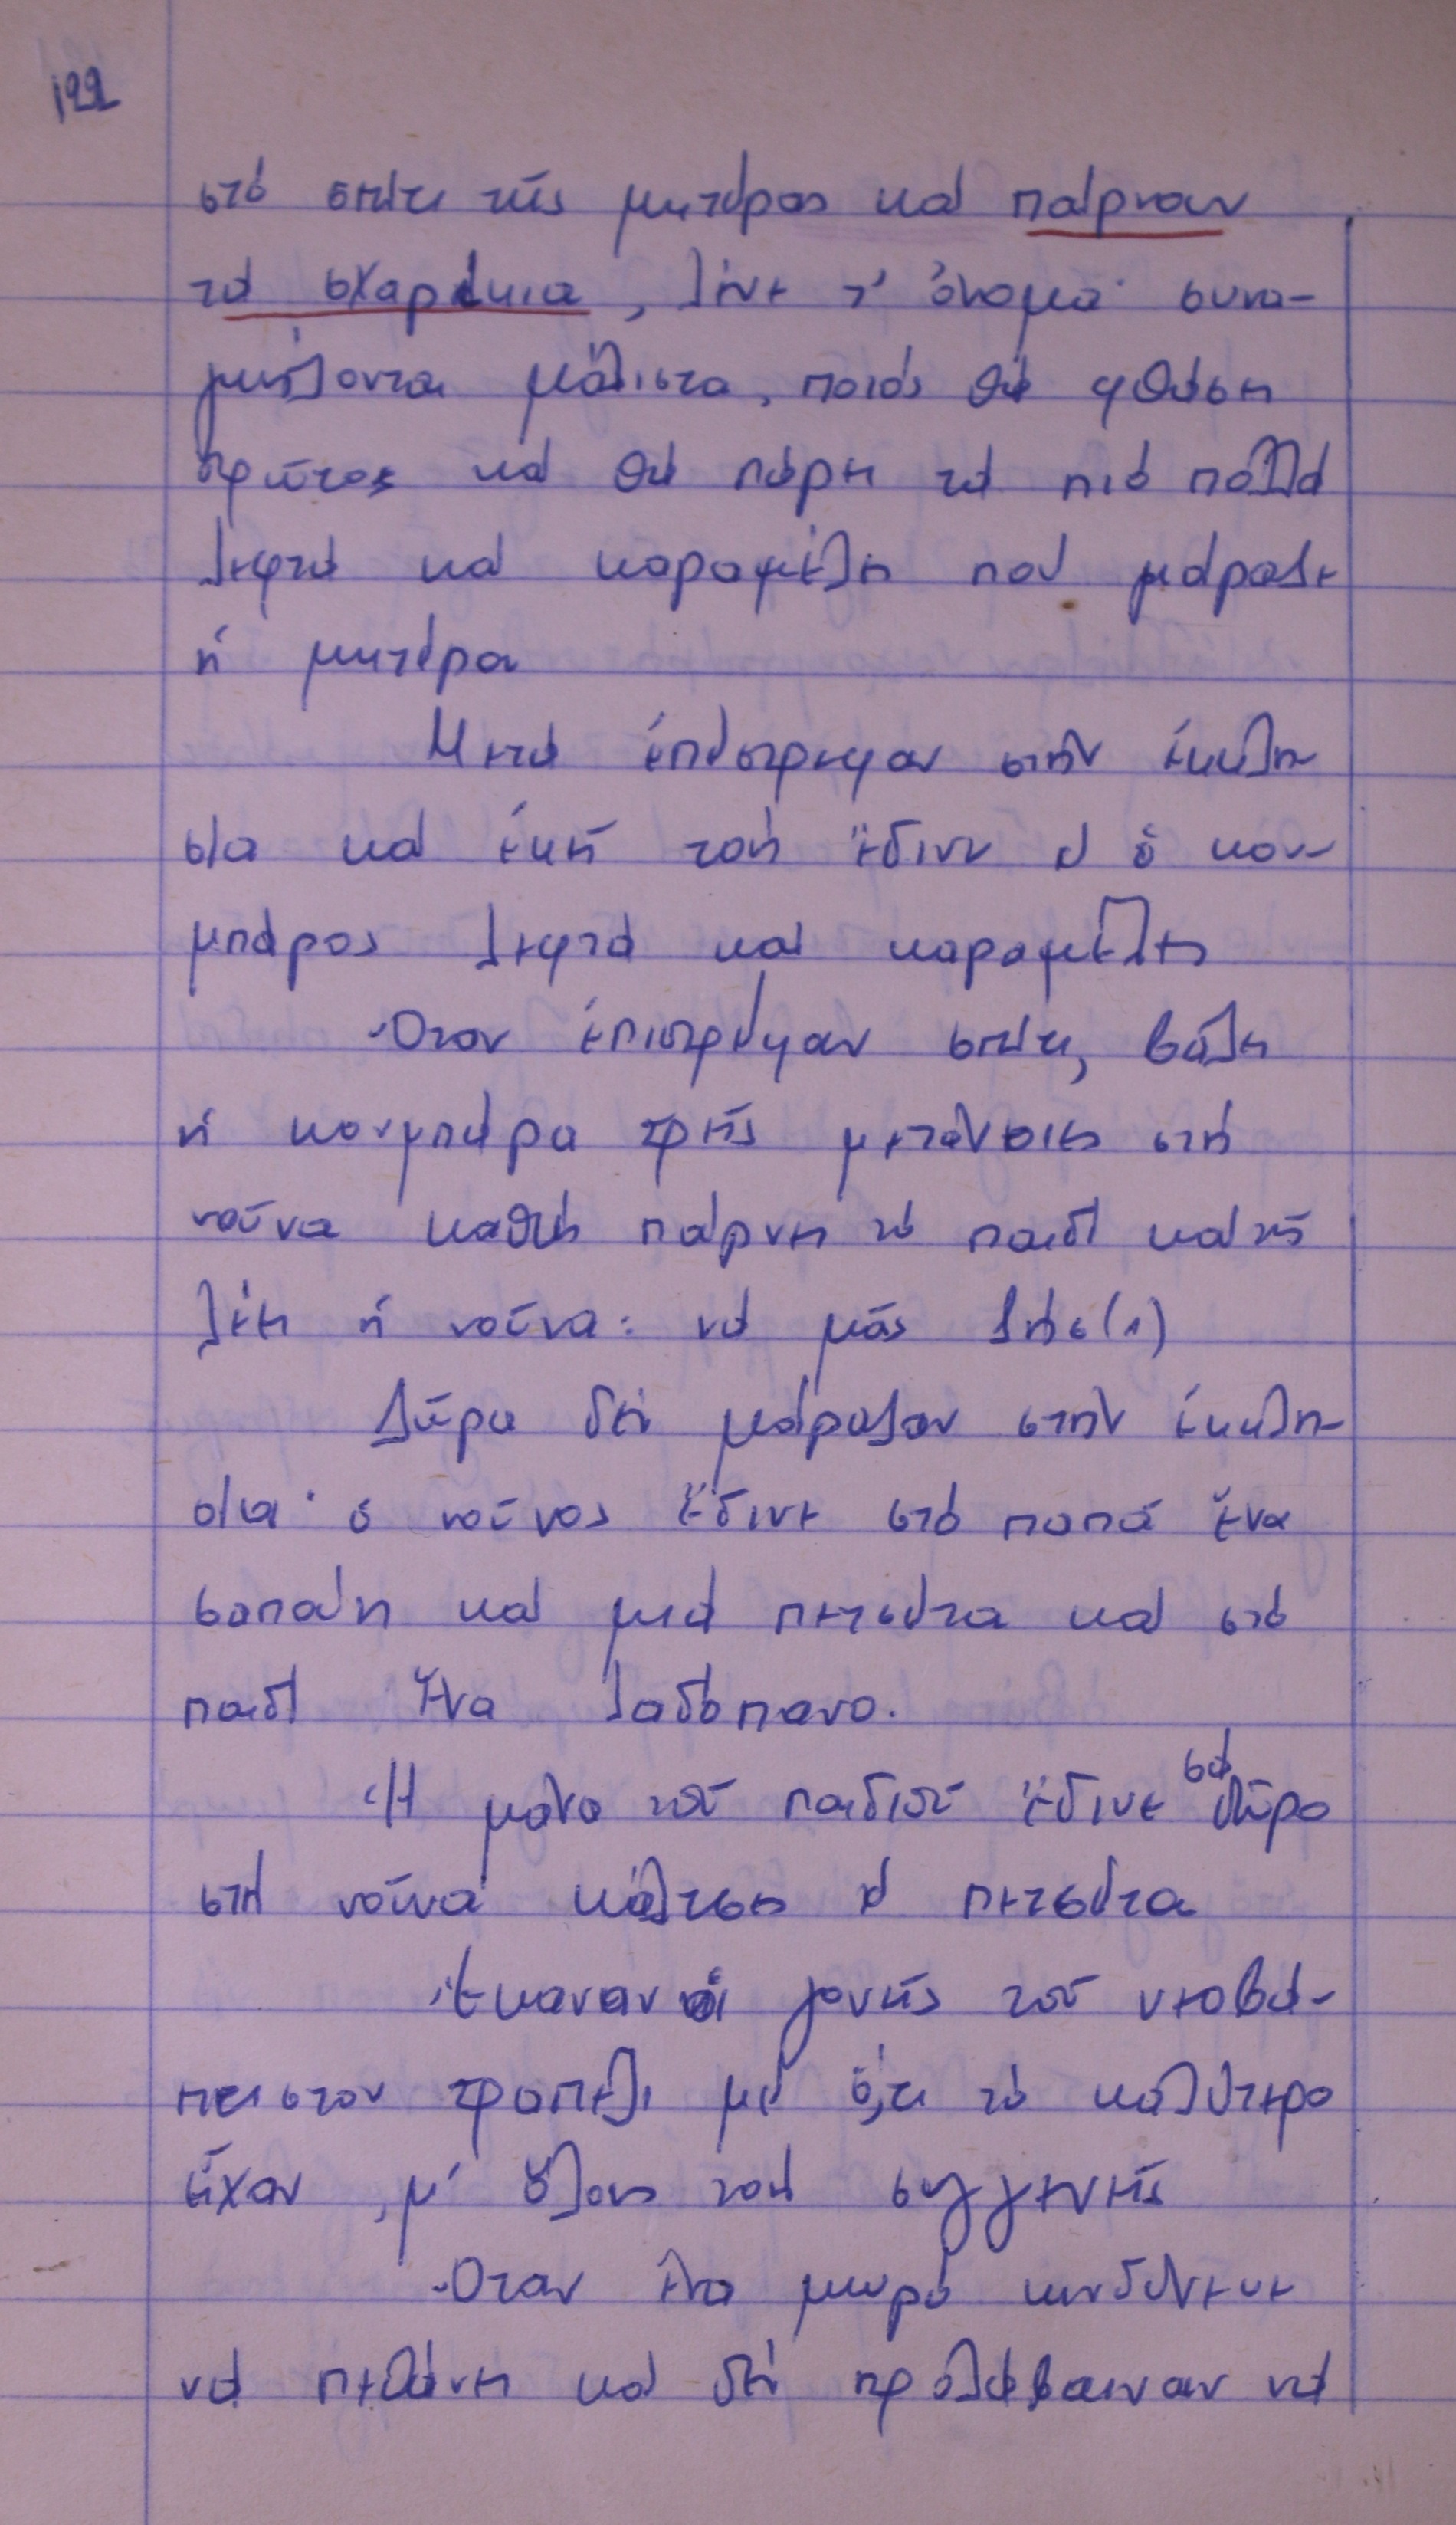 122
στό σπίτι τῆς μητέρας καί παίρναν
τά σχαρίκια, λένε τ' ὄνομα· συνα-
γωνίζονται μάλιστα, ποιός θά φθάση
πρῶτος καί θά πάρη τά πιό πολλά
λεφτά καί καραμέλες πού μοίραζε
ἡ μητέρα
Μετά ἐπέστρεφαν στήν ἐκκλη-
σία καί ἐκεῖ τούς ἔδινε κ ὁ κου-
μπάρος λεφτά καί καραμέλες
Ὅταν ἐπιστρέψαν σπίτι, βάζει
ἡ κουμπάρα τρεῖς μετάνοιες στή
νούνα καθώς παίρνει τό παιδί καί τῆς
λέει ἡ νούνα: νά μᾶς ζήσ(η)
Δῶρα δέν μοίραζαν στήν ἐκκλη-
σία· ὁ νοῦνος ἔδινε στό παπά ἕνα
σαπούνι καί μιά πετσέτα καί στό
παιδί ἕνα λαδόπανο.
Ἡ μάνα τοῦ παιδιοῦ ἔδινε σά δῶρο
στή νούνα κάλτσες κ πετσέτα
Ἔκαναν οἱ γονεῖς τοῦ νεοβα-
πτιστου τραπέζι μέ ὅ,τι τό καλύτερο
εἶχαν, μ' ὅλους τούς συγγενεῖς
Ὅταν ἕνα μωρό κινδύνευε
νά πεθάνει καί δέν προλάβαιναν νά